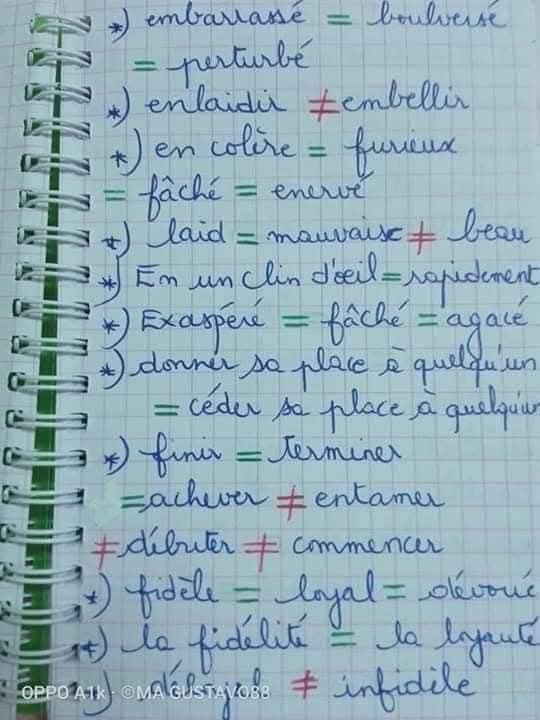 *) embarrassé = boulversé
= perturbé
*) enlaidir ≠ embellir
*) en colère = furieux
= fâché = enervé
*) laid = mauvais ≠ beau
*) En un clin d'œil = rapidement
*) Exaspéré = fâché = agacé
*) donner sa place à quelqu'un
= céder sa place à quelqu'un
*) finir = terminer
= achever ≠ entamer
≠ débuter ≠ commencer
*) fidèle = loyal = dévoué
*) la fidélité = la loyauté
*) déloyal ≠ infidèle
OPPO A1k · ©MA GUSTAVO88